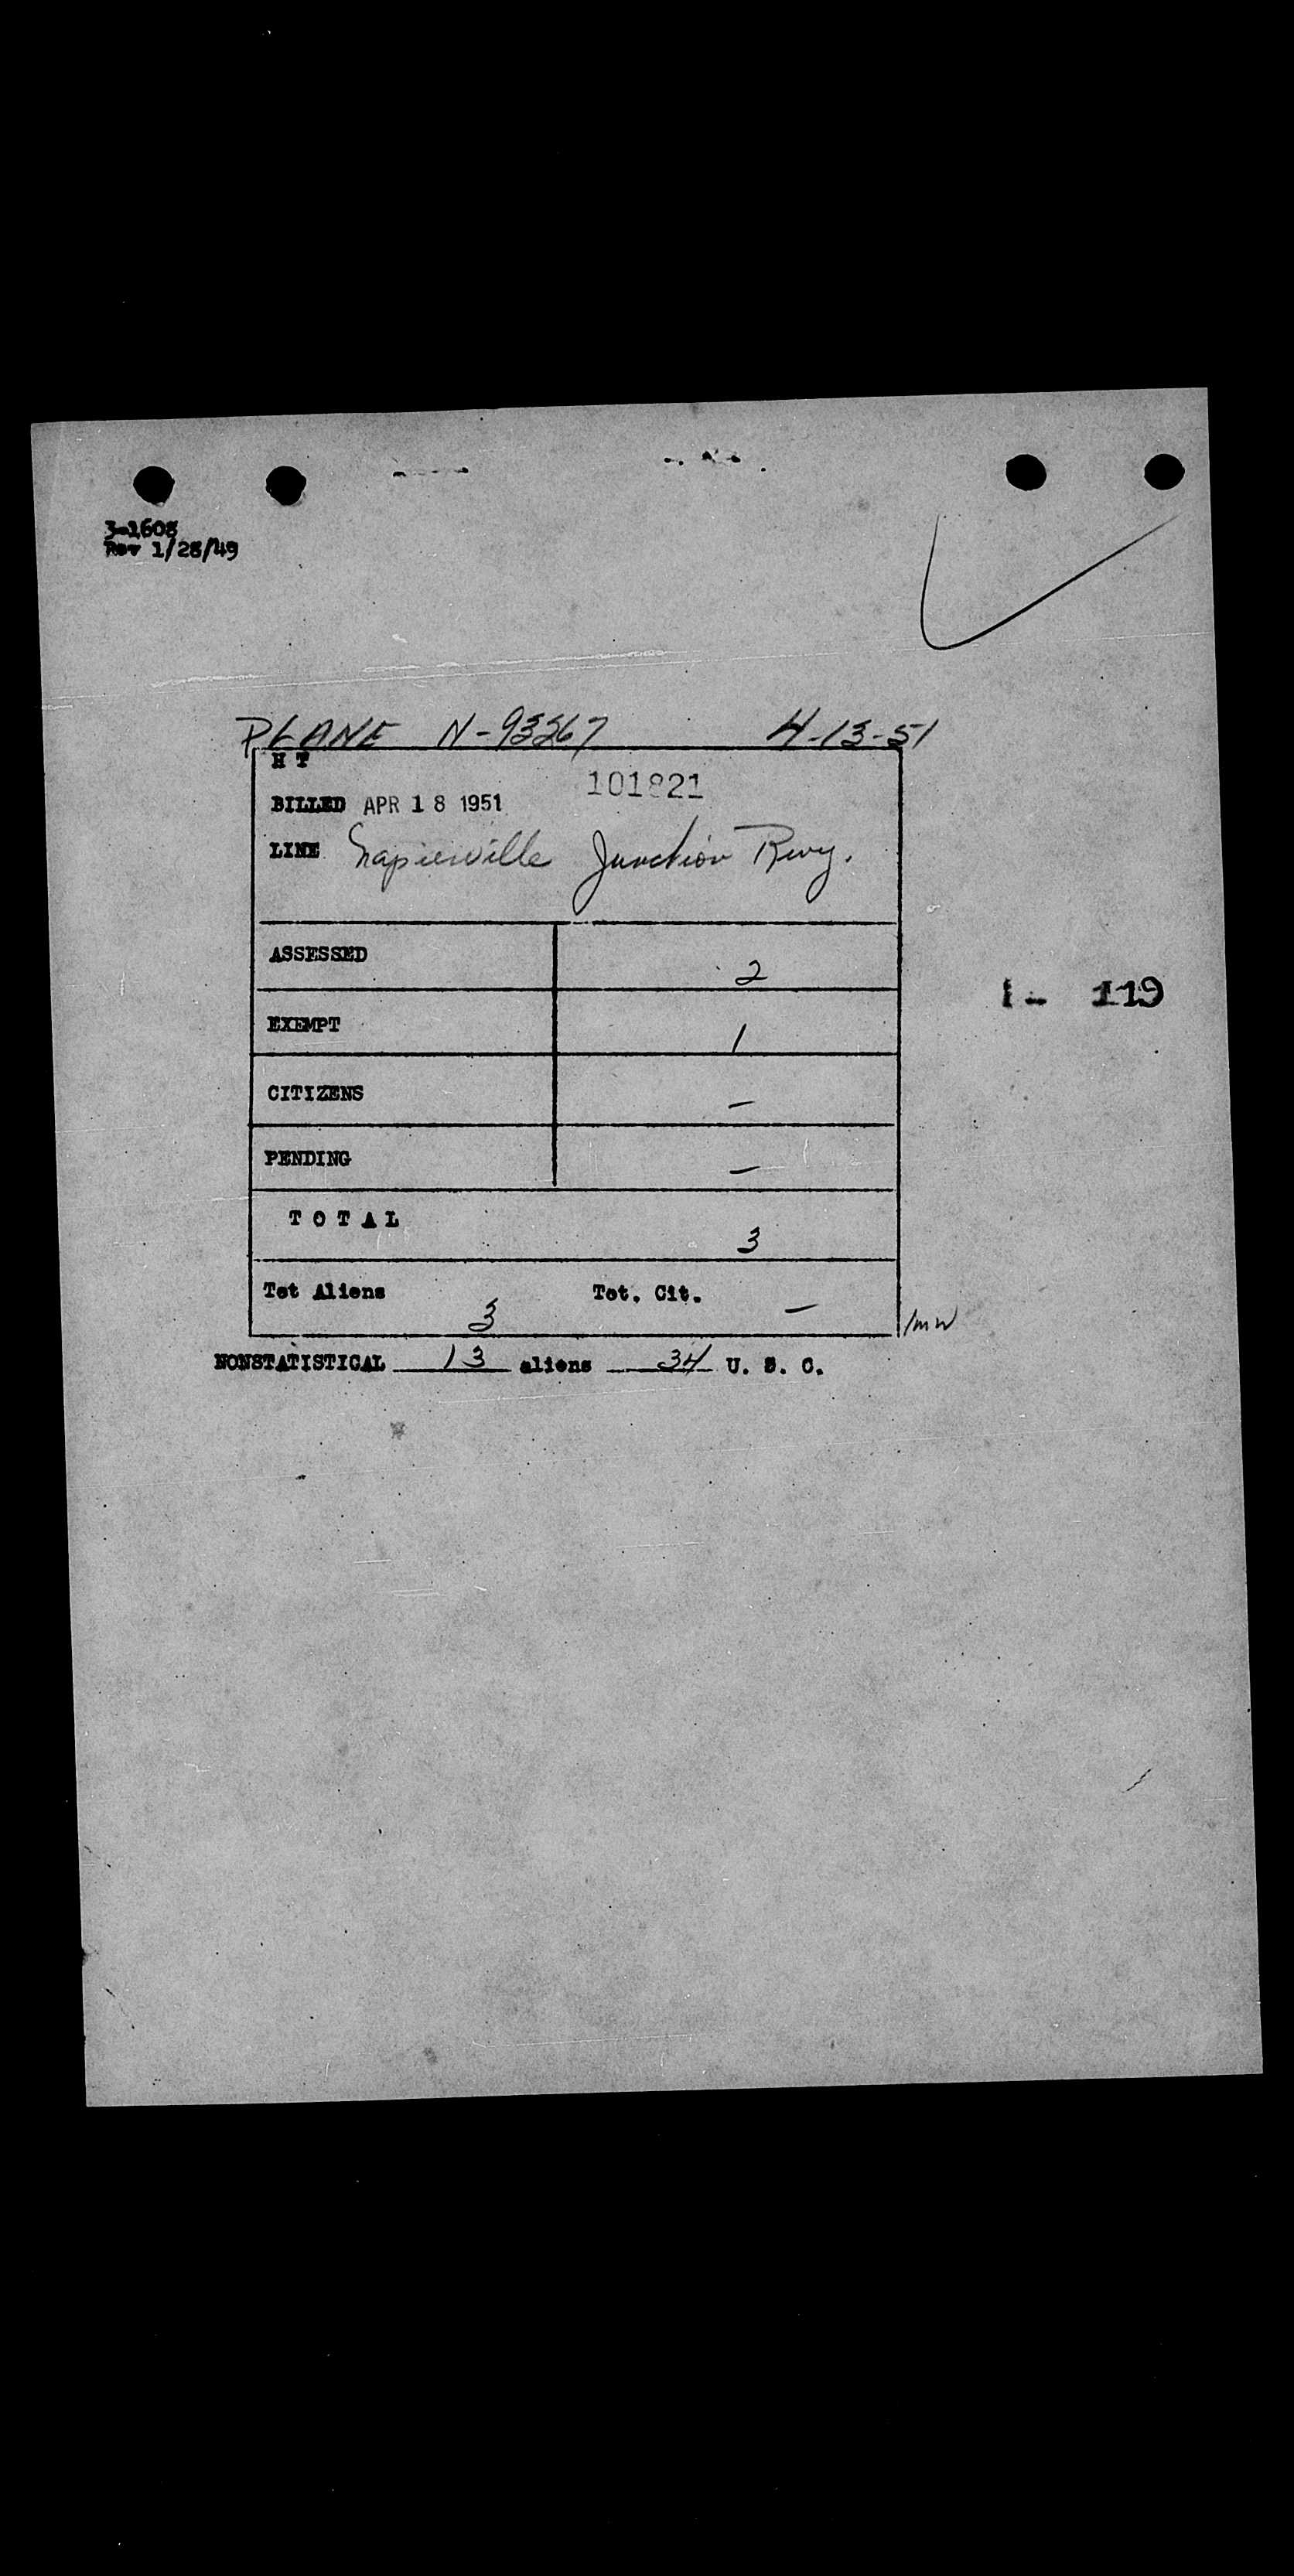 3-1608
Rev 1/28/49
PLANE N-93267 4-13-51
H T
101821
BILLED APR 18 1951
LINE Napierville Junction Rwy.
ASSESSED 2
1- 119
EXEMPT 1
CITIZENS —
PENDING —
TOTAL 3
Tot Aliens 3 Tot. Cit. —
/mw
NONSTATISTICAL 13 aliens 34 U. S. C.